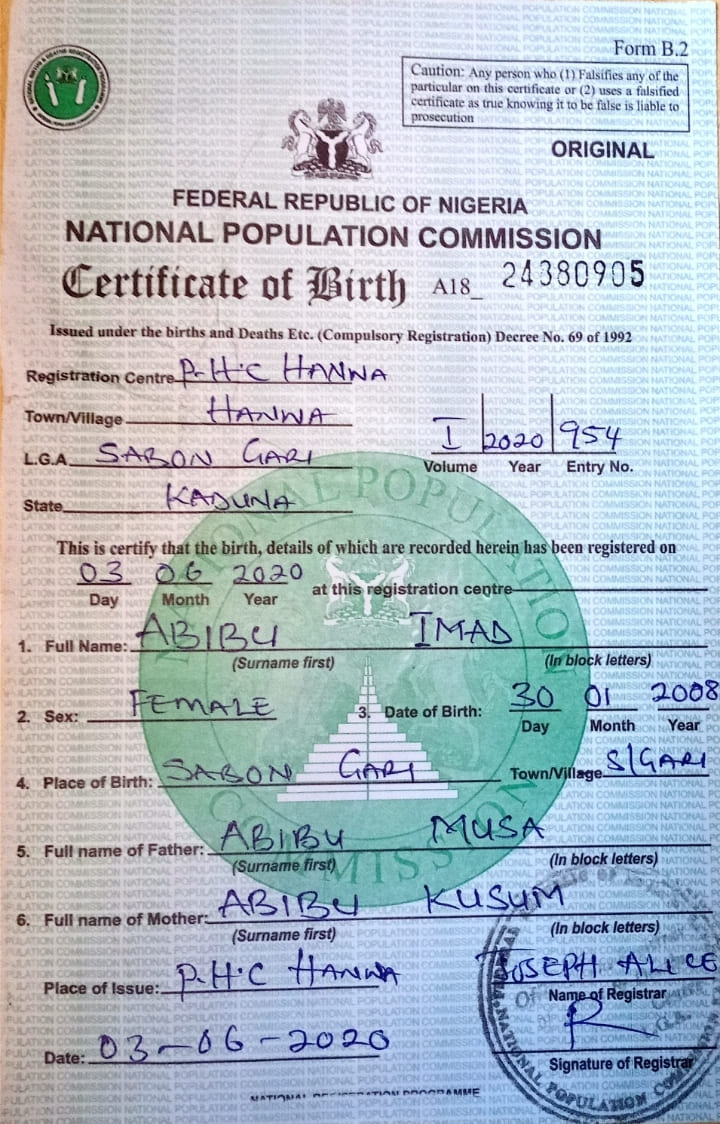 Form B.2
Caution: Any person who (1) Falsifies any of the
particular on this certificate or (2) uses a falsified
certificate as true knowing it to be false is liable to
prosecution
ORIGINAL
FEDERAL REPUBLIC OF NIGERIA
NATIONAL POPULATION COMMISSION
Certificate of Birth A18_ 24380905
Issued under the births and Deaths Etc. (Compulsory Registration) Decree No. 69 of 1992
Registration Centre P.H.C HANWA
Town/Village HANWA
L.G.A. SABON GARI
I 2020 954
Volume Year Entry No.
State KADUNA
This is certify that the birth, details of which are recorded herein has been registered on
03 06 2020 at this registration centre
Day Month Year
1. Full Name: ABIBU IMAD
(Surname first) (In block letters)
2. Sex: FEMALE 3. Date of Birth: 30 01 2008
Day Month Year
4. Place of Birth: SABON GARI Town/Village S/GARI
5. Full name of Father: ABIBU MUSA
(Surname first) (In block letters)
6. Full name of Mother: ABIBU KUSUM
(Surname first) (In block letters)
Place of Issue: P.H.C HANWA JOSEPH ALICE
Name of Registrar
Date: 03-06-2020
Signature of Registrar
NATIONAL POPULATION COMMISSION